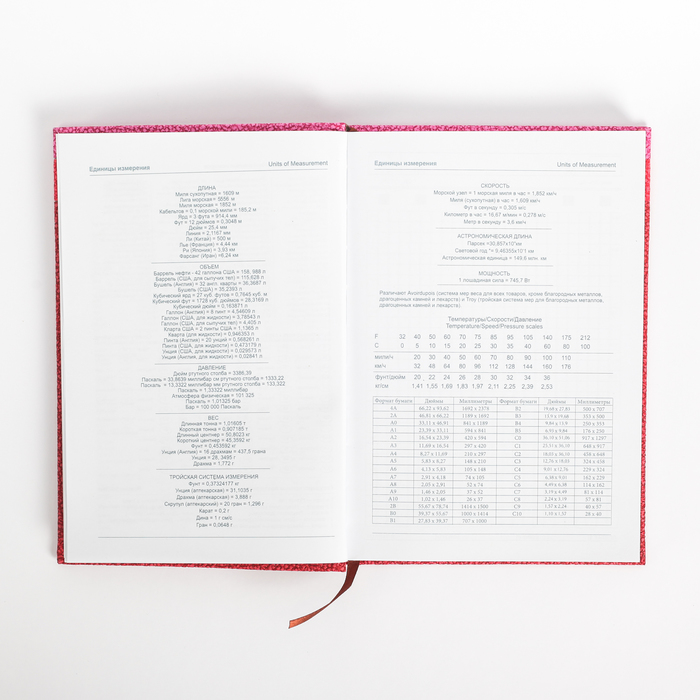 Единицы измерения
Units of Measurement
ДЛИНА
Миля сухопутная = 1609 м
Лига морская = 5556 м
Миля морская = 1852 м
Кабельтов = 0,1 морской мили = 185,2 м
Ярд = 3 фута = 914,4 мм
Фут = 12 дюймов = 0,3048 м
Дюйм = 25,4 мм
Линия = 2,1167 мм
Ли (Китай) = 500 м
Лье (Франция) = 4,44 км
Ри (Япония) = 3,93 км
Фарсанг (Иран) =6,24 км
ОБЪЕМ
Баррель нефти - 42 галлона США = 158, 988 л
Баррель (США, для сыпучих тел) = 115,628 л
Бушель (Англия) = 32 англ. кварты = 36,3687 л
Бушель (США) = 35,2393 л
Кубический ярд = 27 куб. футов = 0,7645 куб. м
Кубический фут = 1728 куб. дюймов = 28,3169 л
Кубический дюйм = 0,163871 л
Галлон (Англия) = 8 пинт = 4,54609 л
Галлон (США, для жидкости) = 3,78543 л
Галлон (США, для сыпучих тел) = 4,405 л
Кварта США = 2 пинты США = 1,1365 л
Кварта (для жидкости) = 0,946353 л
Пинта (Англия) = 20 унций = 0,568261 л
Пинта (США, для жидкости) = 0,473179 л
Унция (США, для жидкости) = 0,029573 л
Унция (Англия, для жидкости) = 0,02841 л
ДАВЛЕНИЕ
Дюйм ртутного столба = 3386,39
Паскаль = 33,8639 миллибар см ртутного столба = 1333,22
Паскаль = 13,3322 миллибар мм ртутного столба = 133,322
Паскаль = 1,33322 миллибар
Атмосфера физическая = 101 325
Паскаль = 1,01325 бар
Бар = 100 000 Паскаль
ВЕС
Длинная тонна = 1,01605 т
Короткая тонна = 0,907185 т
Длинный центнер = 50,8023 кг
Короткий центнер = 45,3592 кг
Фунт = 0,453592 кг
Унция (Англия) = 16 драхмам = 437,5 грана
Унция = 28, 3495 г
Драхма = 1,772 г
ТРОЙСКАЯ СИСТЕМА ИЗМЕРЕНИЯ
Фунт = 0,37324177 кг
Унция (аптекарская) = 31,1035 г
Драхма (аптекарская) = 3,888 г
Скрупул (аптекарский) = 20 гран = 1,296 г
Карат = 0,2 г
Дина = 1 г см/с
Гран = 0,0648 г
Единицы измерения
Units of Measurement
СКОРОСТЬ
Морской узел = 1 морская миля в час = 1,852 км/ч
Миля (сухопутная) в час = 1,609 км/ч
Фут в секунду = 0,305 м/с
Километр в час = 16,67 м/мин = 0,278 м/с
Метр в секунду = 3,6 км/ч
АСТРОНОМИЧЕСКАЯ ДЛИНА
Астрономическая единица = 149,6 млн. км
МОЩНОСТЬ
1 лошадиная сила = 745,7 Вт
Различают Avoirdupois (система мер веса для всех товаров, кроме благородных металлов,
драгоценных камней и лекарств) и Troy (тройская система мер для благородных металлов,
драгоценных камней и лекарств).
Температуры/Скорости/Давление
Temperature/Speed/Pressure scales
F 32 40 50 60 70 75 85 95 105 140 175 212
C 0 5 10 15 20 25 30 35 40 60 80 100
мили/ч 20 30 40 50 60 70 80 90 100 110
км/ч 32 48 64 80 96 112 128 144 160 176
фунт/дюйм 20 22 24 26 28 30 32 34 36
кг/см 1,41 1,55 1,69 1,83 1,97 2,11 2,25 2,39 2,53
Формат бумаги Дюймы Миллиметры Формат бумаги Дюймы Миллиметры
4A 66,22 x 93,62 1682 x 2378 B2 19,68 x 27,83 500 x 707
2A 46,81 x 66,22 1189 x 1682 B3 13,9 x 19,68 353 x 500
A0 33,11 x 46,81 841 x 1189 B4 9,84 x 13,9 250 x 353
A1 23,39 x 33,11 594 x 841 B5 6,93 x 9,84 176 x 250
A2 16,54 x 23,39 420 x 594 C0 36,10 x 51,06 917 x 1297
A3 11,69 x 16,54 297 x 420 C1 25,51 x 36,10 648 x 917
A4 8,27 x 11,69 210 x 297 C2 18,03 x 25,51 458 x 648
A5 5,83 x 8,27 148 x 210 C3 12,76 x 18,03 324 x 458
A6 4,13 x 5,83 105 x 148 C4 9,01 x 12,76 229 x 324
A7 2,91 x 4,13 74 x 105 C5 6,38 x 9,01 162 x 229
A8 2,05 x 2,91 52 x 74 C6 4,49 x 6,38 114 x 162
A9 1,46 x 2,05 37 x 52 C7 3,19 x 4,49 81 x 114
A10 1,02 x 1,46 26 x 37 C8 2,24 x 3,19 57 x 81
2B 55,67 x 78,74 1414 x 2000 C9 1,57 x 2,24 40 x 57
B0 39,37 x 55,67 1000 x 1414 C10 1,10 x 1,57 28 x 40
B1 27,83 x 39,37 707 x 1000